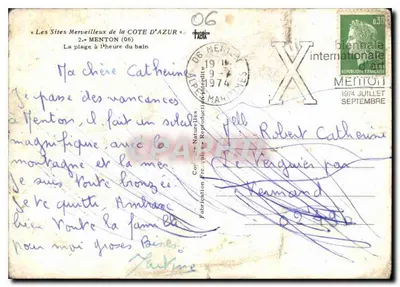 06
« Les Sites Merveilleux de la COTE D'AZUR »
2.- MENTON (06)
La plage à l'heure du bain
0,30
REPUBLIQUE FRANÇAISE
06 MENTON
19 H
9 - 
1974
ALPES MARITIMES
X
biennale
internationale
MENTON
1974 JUILLET
SEPTEMBRE
Ma chère Catherine
Je passe des vancances
à Menton, il fait un soleil
magnifique, avec la
montagne et la mer
je suis toute bronzée.
Je te quitte Embrasse
bien toute la famille
pour moi groses Bises
Couleurs Naturelles
Fabrication Française Reproduction interdite
Melle
Robert Catherine
Le Verguier par
Vermand